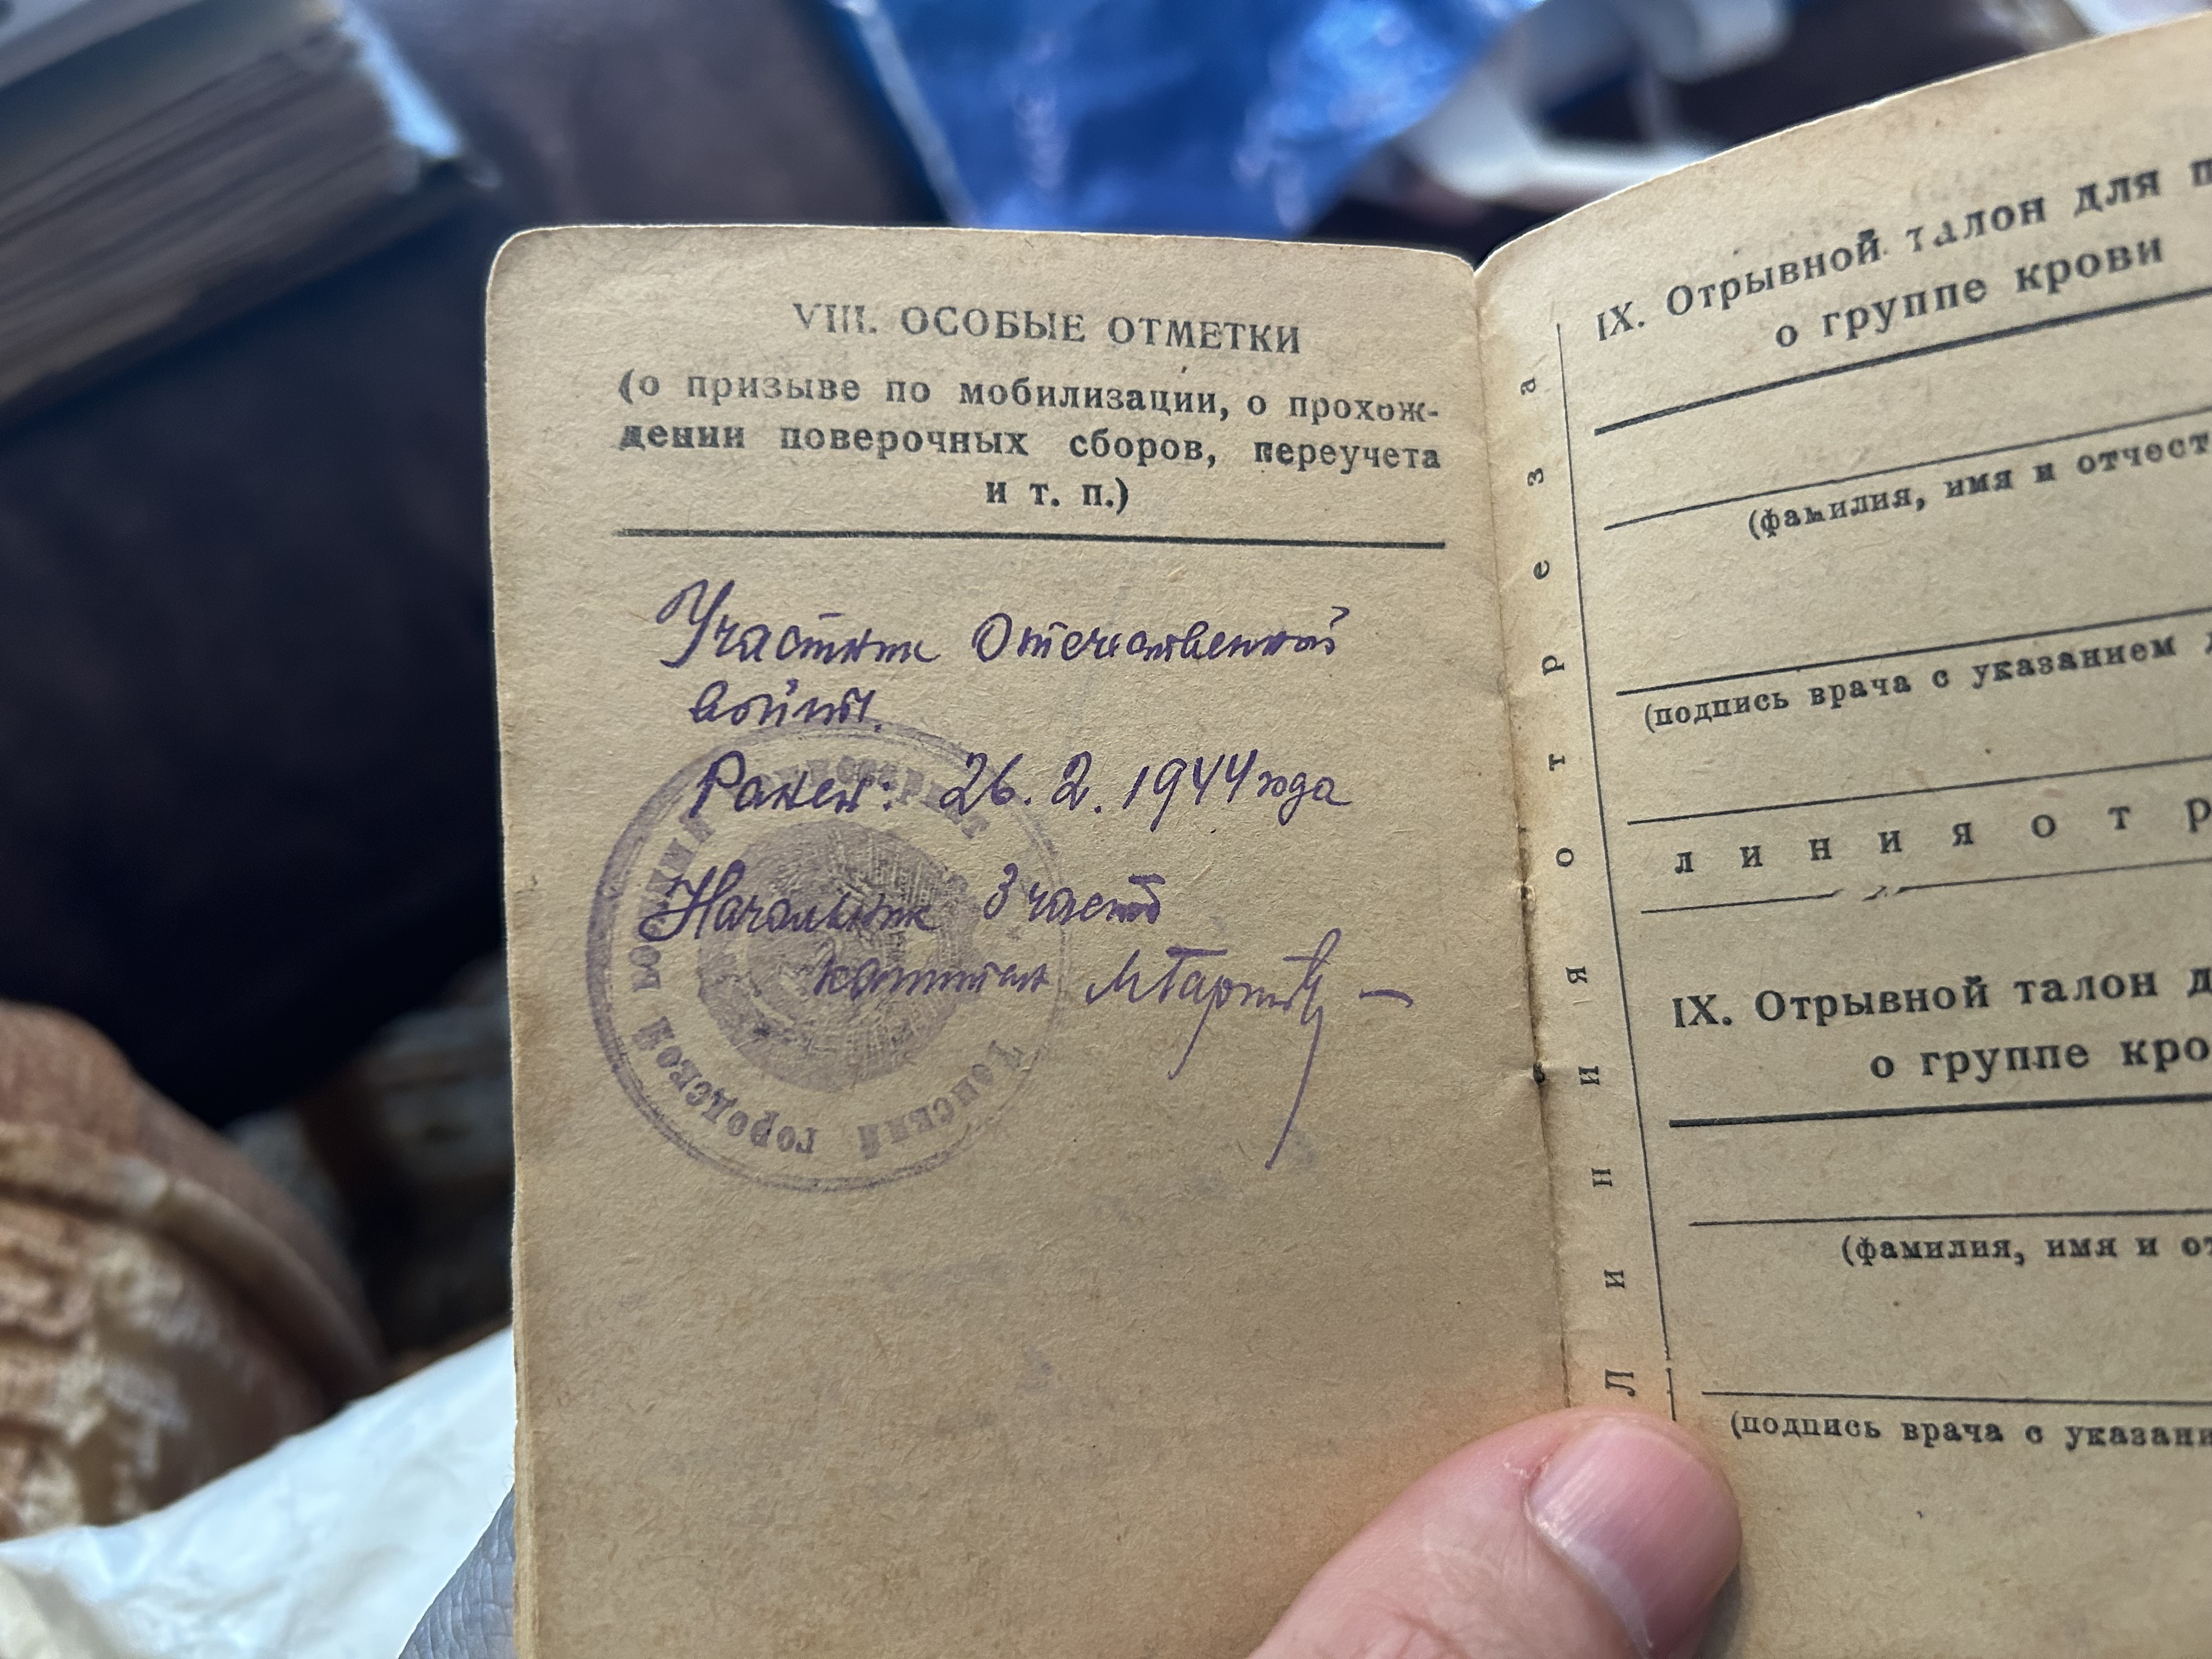 VIII. ОСОБЫЕ ОТМЕТКИ
(о призыве по мобилизации, о прохож-
дении поверочных сборов, переучета
и т. п.)
Участник Отечественной
войны.
Ранен: 26. 2. 1944 года
Начальник 3 части
капитан
ГОРОДСКОЙ ВОЕННЫЙ
Линия отреза
IX. Отрывной талон для п
о группе крови
(фамилия, имя и отчест
(подпись врача с указанием д
линия отр
IX. Отрывной талон д
о группе кро
(фамилия, имя и от
(подпись врача с указани